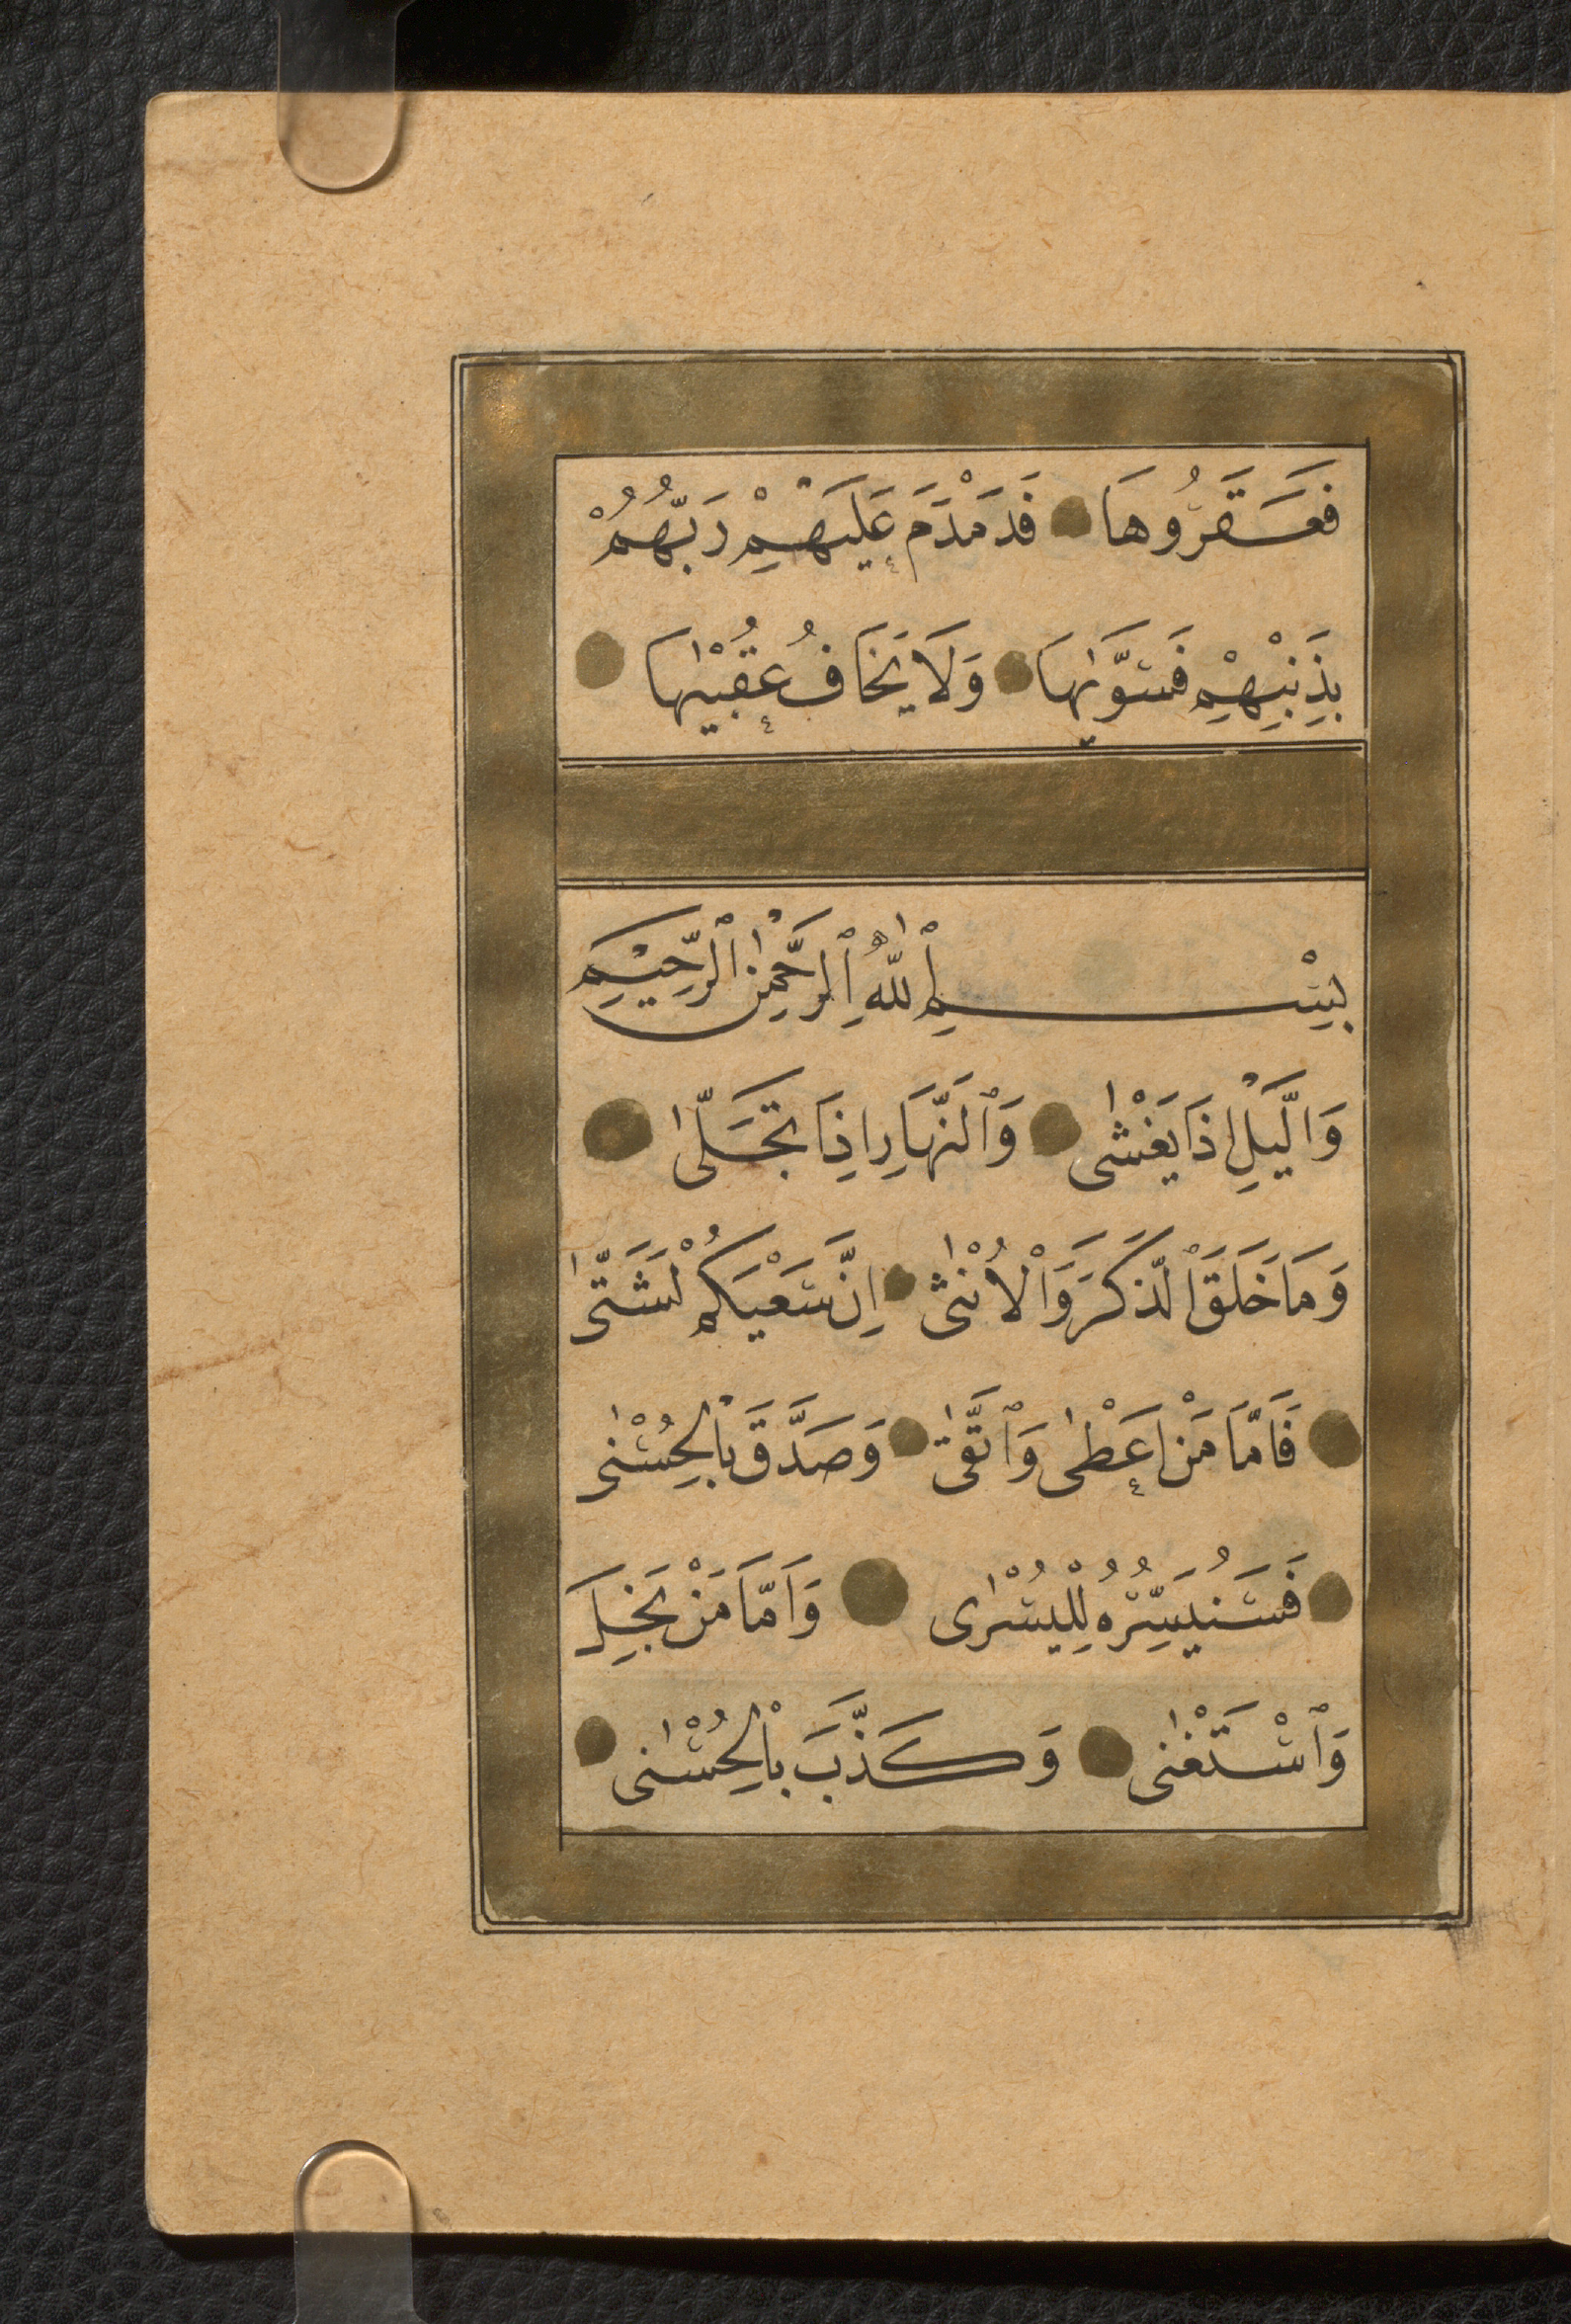 فَعَقَرُوهَا فَدَمْدَمَ عَلَيْهِمْ رَبُّهُمْ
بِذَنْبِهِمْ فَسَوّٰيهَا وَلَا يَخَافُ عُقْبٰيهَا
بِسْمِ ٱللّٰهِ ٱلرَّحْمٰنِ ٱلرَّحِيْمِ
وَالَّيْلِ اِذَا يَغْشٰى وَٱلنَّهَارِ اِذَا تَجَلّٰى
وَمَا خَلَقَ ٱلذَّكَرَ وَٱلْاُنْثٰى اِنَّ سَعْيَكُمْ لَشَتّٰى
فَاَمَّا مَنْ اَعْطٰى وَٱتَّقٰى وَصَدَّقَ بِٱلْحُسْنٰى
فَسَنُيَسِّرُهُ لِلْيُسْرٰى وَاَمَّا مَنْ بَخِلَ
وَٱسْتَغْنٰى وَكَذَّبَ بِٱلْحُسْنٰى